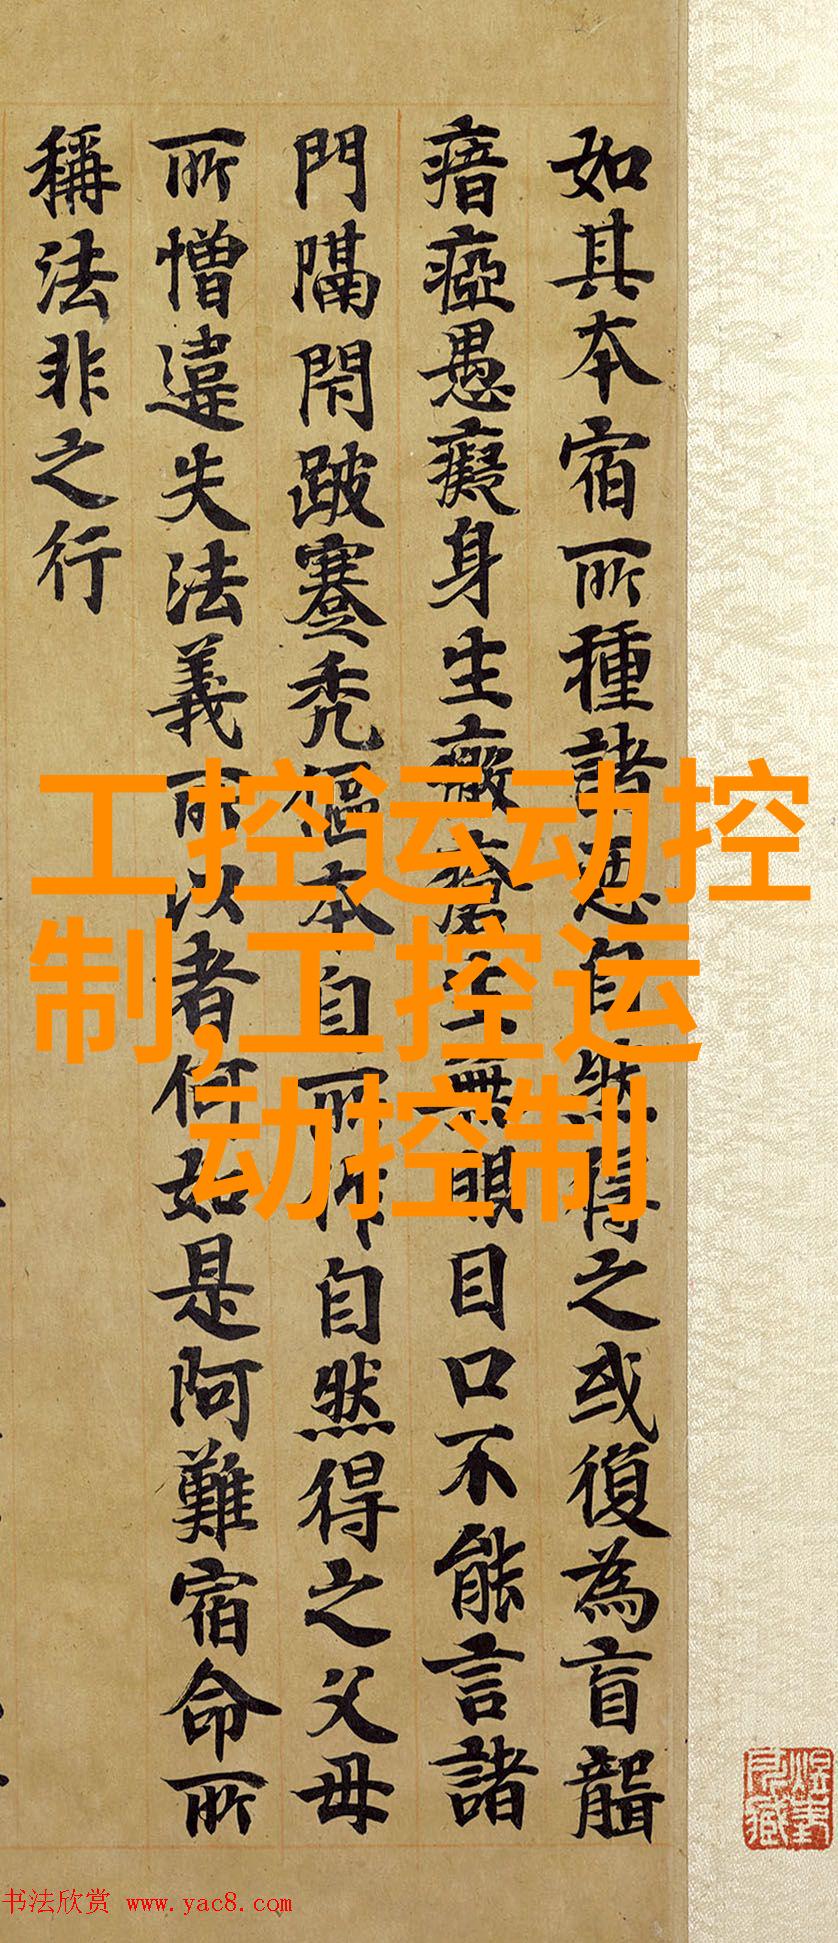 如其本宿所種諸惡自然得之或復為盲聾
瘖瘂愚癡身生瘡無眼目口不能言諸
門隔閇跛蹇禿傴本自所作自然得之父母
所憎違失法義所以者何如是阿難宿命所
稱法非之行
工控运动控
制,工控运
动控制
书法欣赏 www.yac8.com